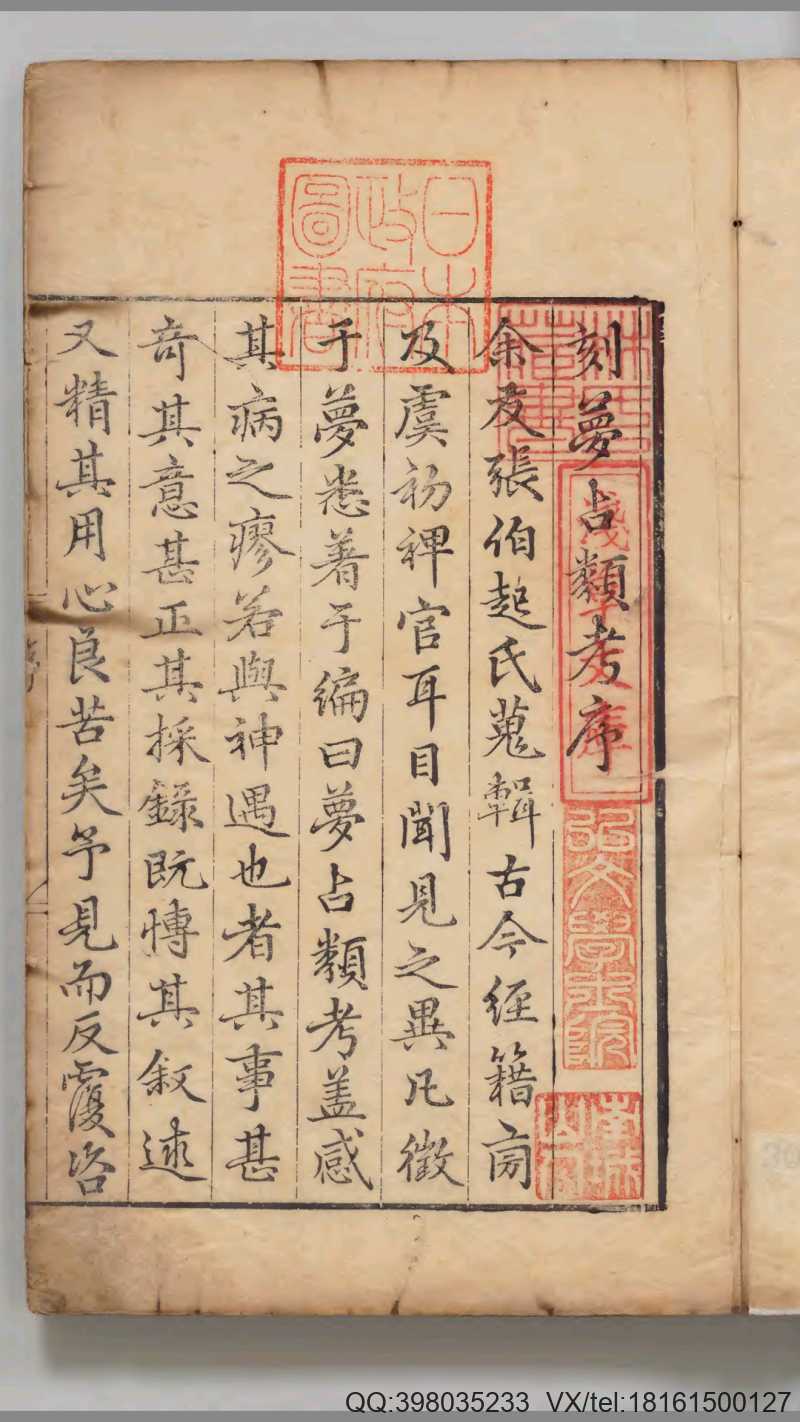 刻夢占類考序
余友張伯起氏蒐輯古今經籍旁
及虞初稗官耳目聞見之異凡徵
于夢悉著于編曰夢占類考盖感
其病之瘳若與神遇也者其事甚
奇其意甚正其採錄既博其叙述
又精其用心良苦矣予見而反覆咨
日本
政府
圖書
淺草文庫
弘文學士院
QQ:398035233 VX/tel:18161500127